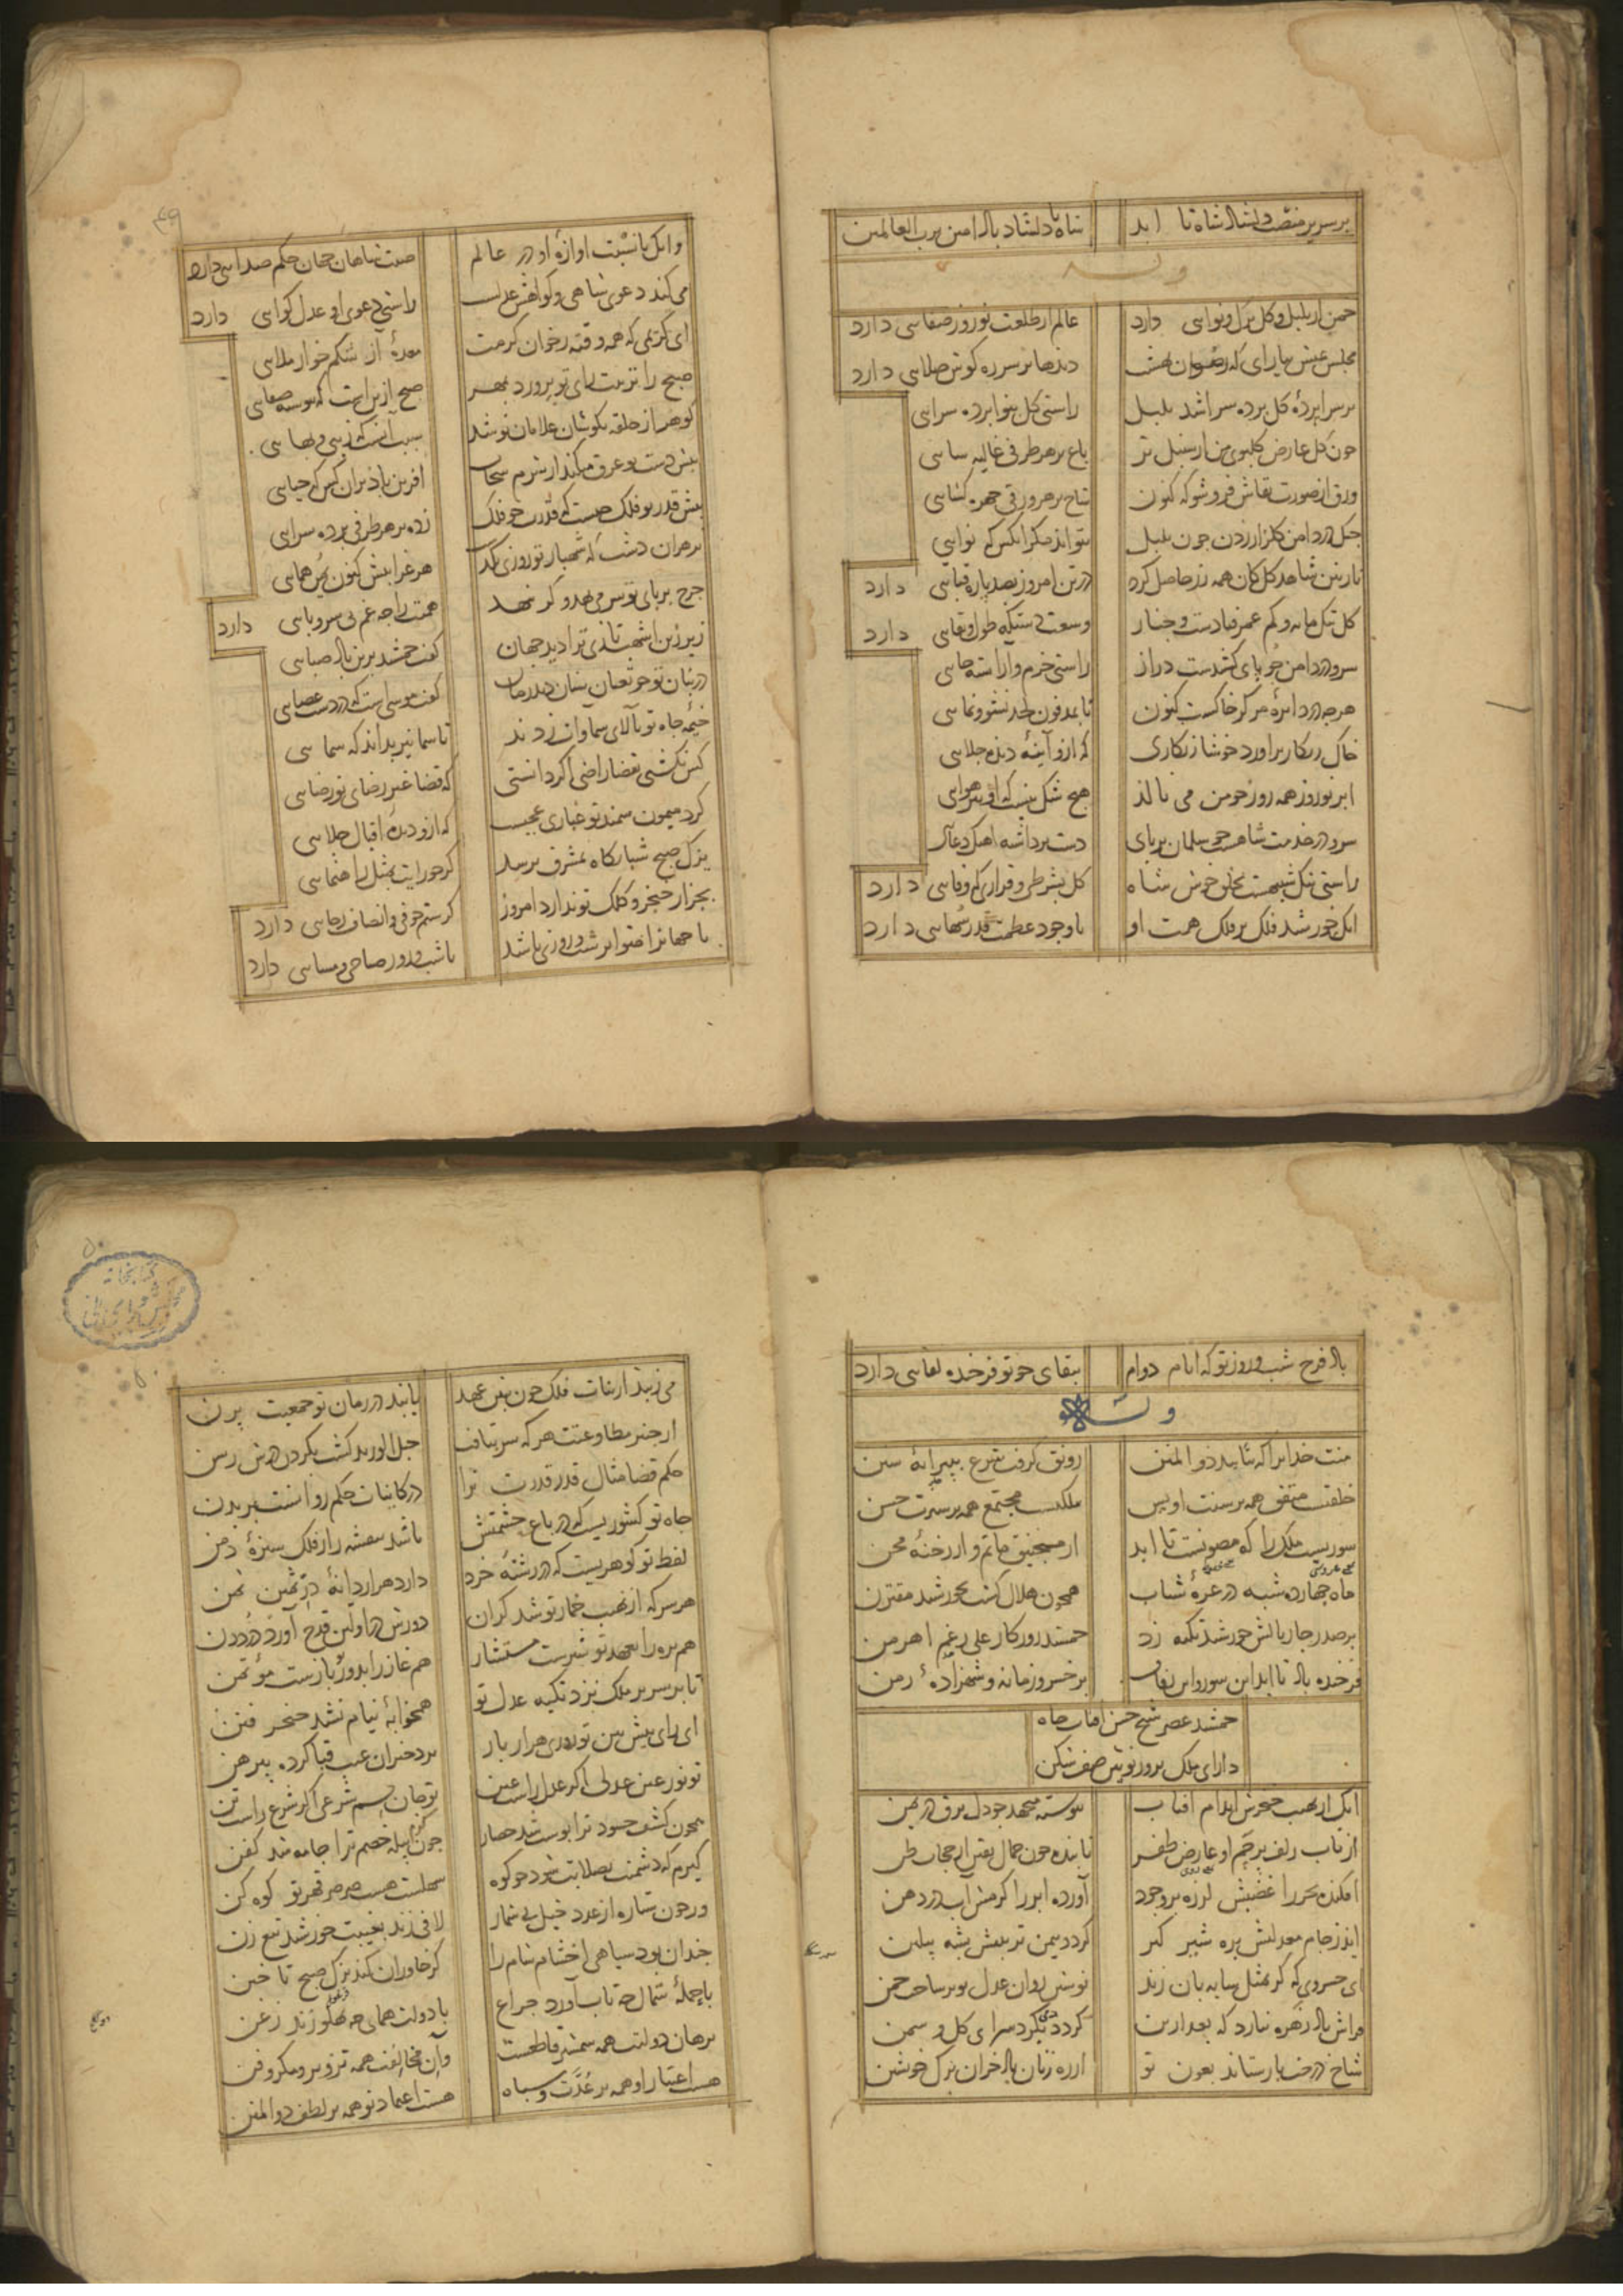 بر سریر منقبت دلشاد شاه تا ابد
شاه با دلشاد باد امین رب العالمین
وله
چمن از بلبل و گل برگ و نوایی دارد
عالم از طلعت نوروز صفایی دارد
مجلس عیش بیارای که رضوان بهشت
دیدها بر سر ره گوش صلایی دارد
بر سراپرده گل پرده سرا شد بلبل
راستی گل بنوا پرده سرایی
چون گل عارض گلبوی من از سنبل تر
باغ بر هر طرفی غالیه سایی
ورق از صورت نقاش فروشو که کنون
شاخ بر هر ورقی چهره گشایی
چنگ در دامن گلزار زدن چون بلبل
بتواند مگر آنکس که نوایی
نازنین شاهد گل کان همه زر حاصل کرد
در تن امروز بصد پاره قبایی دارد
گل تنک مایه و کم عمر فتادست و چنار
وسعت دستگه طول و بقایی دارد
سرو در دامن جو پای کشیدست دراز
راستی خرم و آراسته جایی
هرچه در دایره مرکز خاکست کنون
تا بمدفون لحد نشو و نمایی
خاک زنگار برآورد خوشا زنگاری
که ازو آینه دیده جلایی
ابر نوروز همه روز چو من می نالد
هیچ شک نیست که او نیز هوایی
سرو در خدمت شاهست چو سلمان بر پای
دست برداشته آهنگ دعایی
راستی تنک شبیهست بخلق خوش شاه
گل بشرطی و قراری که وفایی دارد
آنک خورشید فلک بر فلک همت او
با وجود عظمت قدر سهایی دارد
وانک با نسبت آوازه او در عالم
صیت شاهان جهان حکم صدایی دارد
می کند دعوی شاهی و گواهش عدلست
راستی دعوی او عدل گوایی دارد
ای کریمی که همه وقت ز خوان کرمت
معده آز شکم خوار ملایی
صبح را تربیت رای تو پرورد بمهر
صبح ازین است که پیوسته صفایی
گوهر از حلقه بگوشان غلامان تو شد
سبب آنست که زیبی و بهایی
پیش دست تو عرق میکند از شرم سحاب
آفرین باد بران کس که حیایی
پیش قدر تو فلک چیست که قدرت چو فلک
زده بر هر طرفی پرده سرایی
بر هران دشت که شهباز تو روزی بگذشت
هر غرابیش کنون فر همایی
چرخ بر پای تو سر می نهد و گر ننهد
همتت را چه غم بی سر و پایی دارد
زیر زین اشهب تازی ترا دید جهان
گفت جمشید برین باد صبایی
در بنان تو چو ثعبان سنان دید زمان
گفت موسی است که در دست عصایی
خیمه جاه تو بالای سماوات زدند
تا سما نیز بداند که سمایی
کس نگشتی بقضا راضی اگر دانستی
که قضا غیر رضای تو رضایی
گرد میمون سمند تو غباری عجبست
که ازو دیده اقبال جلایی
یزک صبح شبانگاه بمشرق برسد
گر چو رایت بمثل راهنمایی
بجز از خنجر و کلک تو ندارد امروز
گر ستم خوفی و انصاف رجایی دارد
تا جهانرا ضوابر شب و روزی باشد
تا شب و روز صباحی و مسایی دارد
باد فرخ شب و روز تو که ایام دوام
ببقای چو تو فرخنده لقایی دارد
وله
منت خدایرا که بتایید ذوالمنن
رونق گرفت شرع بپیرایه سنن
خلقست متفق همه بر سنت اویس
ملکست مجتمع همه بر سیرت حسن
سوریست ملک را که مصونست تا ابد
از منجنیق ماتم و از رخنه محن
ماه چهارده شبه در غره شباب
همچون هلال گشت بخورشید مقترن
بر صدر چار بالش خورشید تکیه زد
جمشید روزگار علی رغم اهرمن
فرخنده باد تا ابد این سور و این زفاف
بر خسرو زمانه و شهزاده زمن
جمشید عصر شیخ حسن آفتاب جاه
دارای ملک پرور نویین صف شکن
آنک از نهیب خنجرش اندام آفتاب
پیوسته میجهد چو دل برق در بدن
از تاب زلف پرچم او عارض ظفر
تابنده چون جمال یقین از حجاب ظن
افکنده بحر را غضبش لرزه بر وجود
آورده ابر را کرمش آب در دهن
اندر حمام معدلتش بره شیر گیر
گردد بیمن تربیتش پشه پیلتن
ای خسروی که گر بمثل سایه بان زند
نوشین روان عدل تو بر ساحت چمن
فراش باد زهره ندارد که بعد ازین
گردد بگرد سرای گل و سمن
شاخ درخت باز ستاند بعون تو
از ره زنان باد خزان برگ خویشتن
می زیبد از بنات فلک چون بنین عهد
یابند در زمان تو جمعیت پرن
از چنبر مطاوعتت هر که سر بتافت
حبل الورید گشت بگردن درش رسن
حکم قضا مثال قدر قدرت ترا
در کاینات حکم روانست بر بدن
جاه تو کشوریست که در باغ حشمتش
باشد بنفشه زار فلک سبزه دمن
لفظ تو گوهریست که در رشته خرد
دارد هزار دانه در ثمین ثمن
هر سر که از نهیب خمار تو شد گران
دورش در اولین قدح آورد درد دن
هم بره را بعهد تو شیرست مستشار
هم غاز را بدور تو بازست مؤتمن
تا بر سریر ملک نزد تکیه عدل تو
همخوابه نیام نشد خنجر فتن
ای رای پیش بین تو روزی هزار بار
بر دختران غیب قبا کرده پیرهن
تو نور عین عدلی اگر عدل راست عین
تو جان جسم شرعی اگر شرع راست تن
همچون کشف حسود ترا پوست شد حصار
چون پیله خصم ترا جامه شد کفن
گیرم که دشمنت بصلابت شود چو کوه
سهلست هست صرصر قهر تو کوه کن
ور چون ستاره از عدد خیل بی شمار
لافی زند بغیبت خورشید تیغ زن
چندان بود سیاهی احشام شام را
کز خاوران کند یزک صبح تاختن
با حمله شمال چه تاب آورد چراغ
با دولت همای چه پهلو زند زغن
برهان دولتت همه شمشیر قاطعست
وان مخالفت همه تزویر و مکر و فن
هست اعتبار او همه بر عدت و سپاه
هست اعتماد تو همه بر لطف ذوالمنن